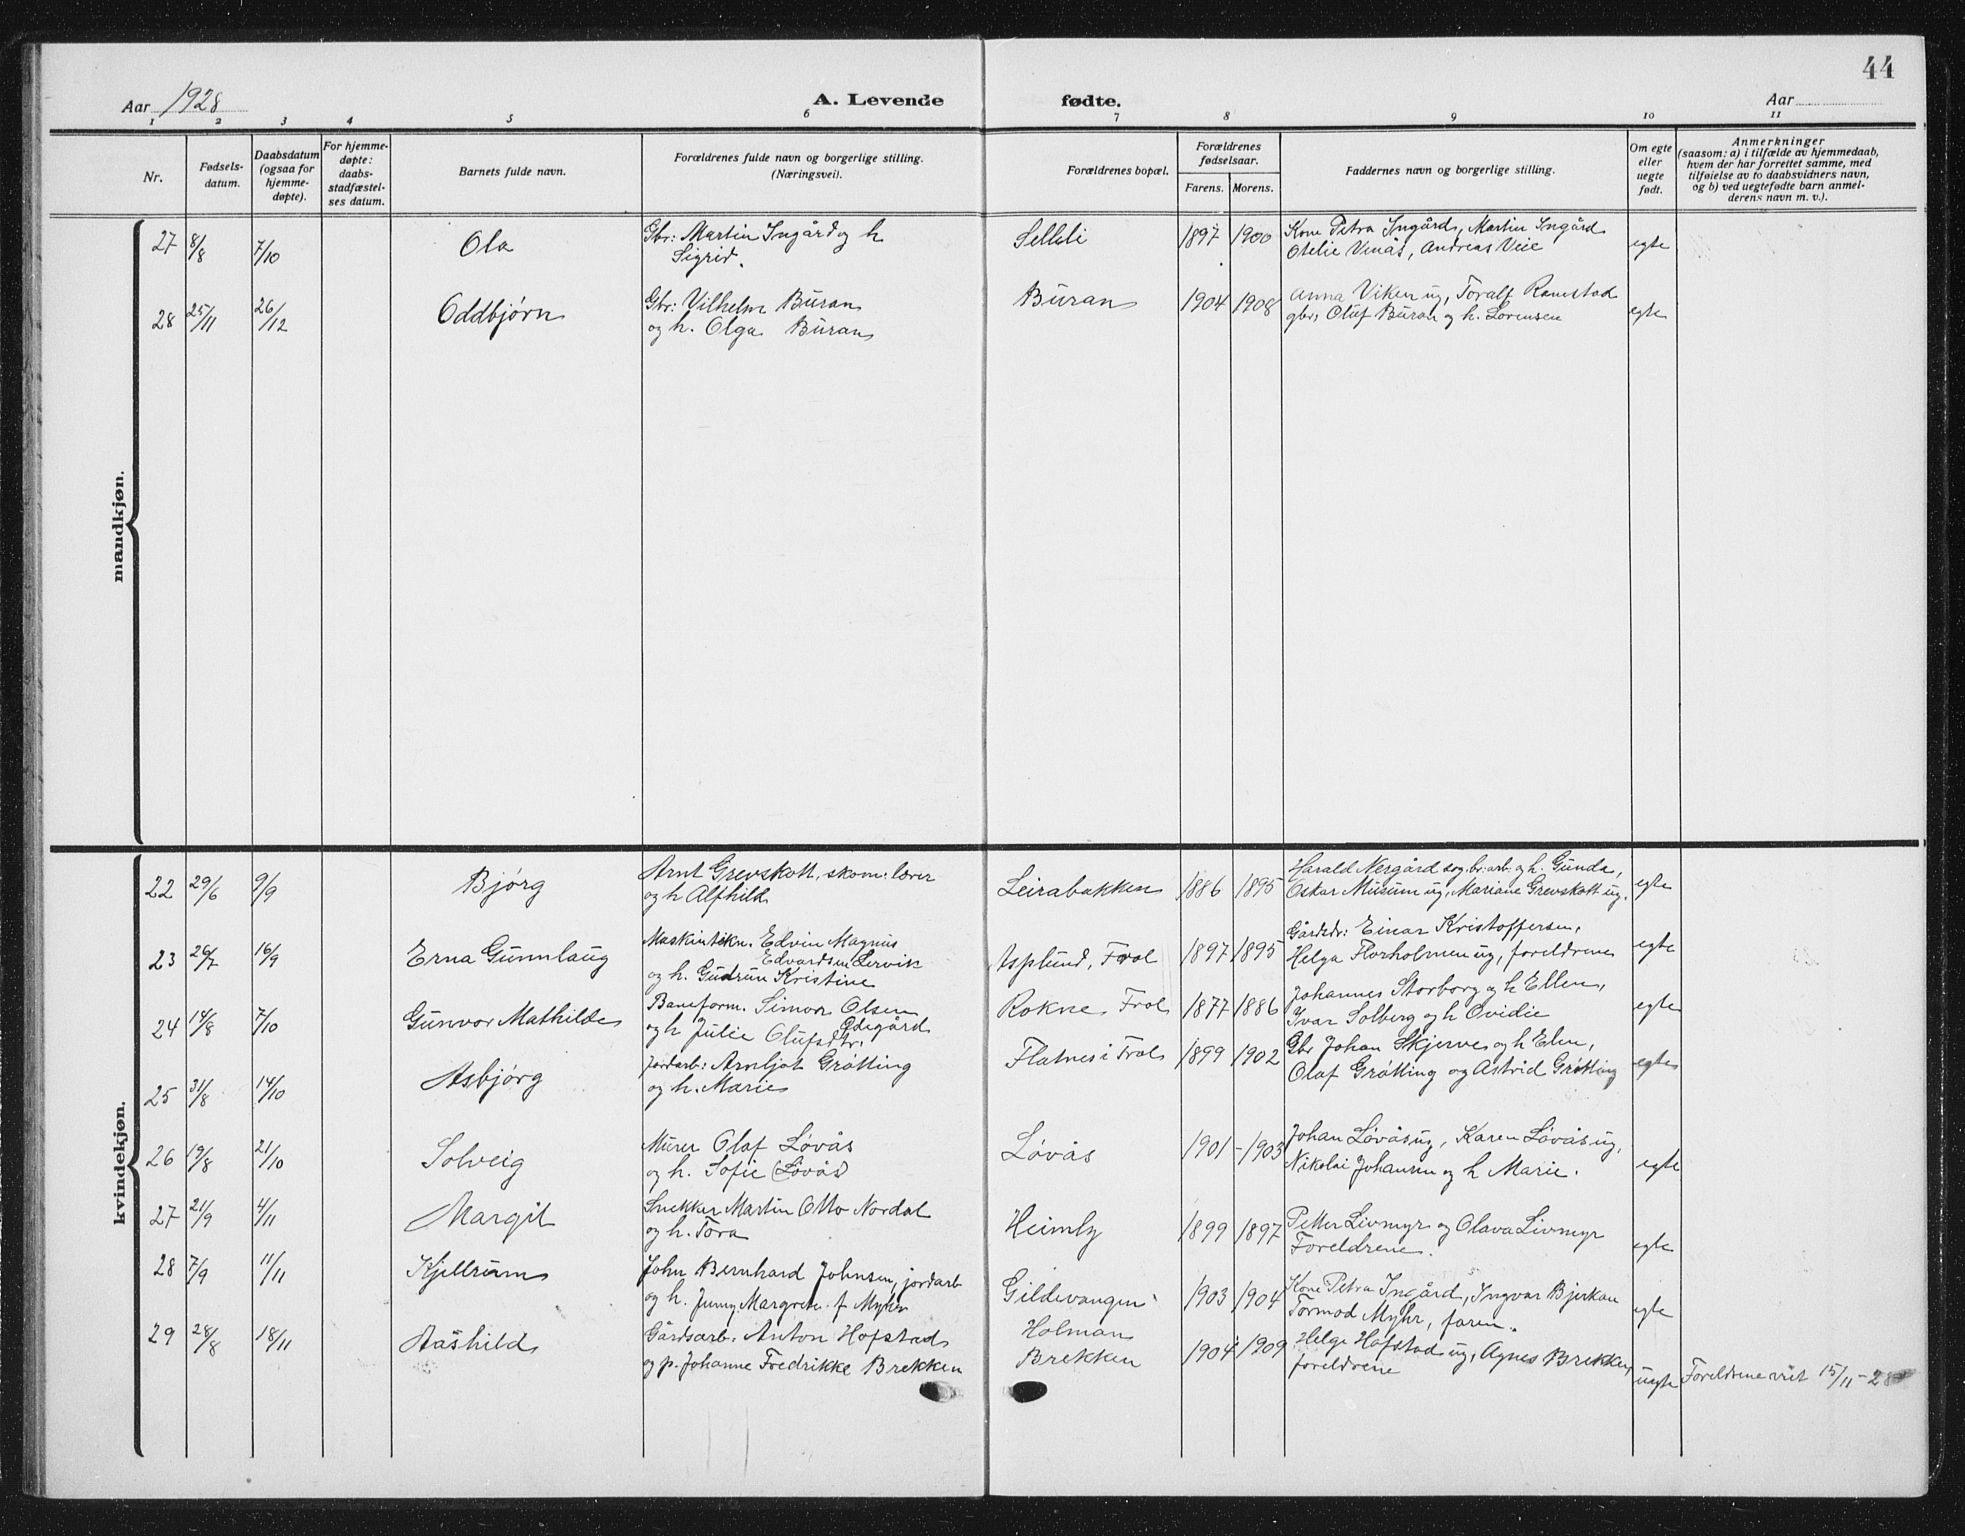 44
Aar 1928
A. Levende fødte.
Aar
1 2 3 4 5 6 7 8 9 10 11
Nr.
Fødsels-
datum.
Daabsdatum
(ogsaa for
hjemme-
døpte).
For hjemme-
døpte:
daabs-
stadfæstel-
ses datum.
Barnets fulde navn.
Forældrenes fulde navn og borgerlige stilling.
(Næringsvei).
Forældrenes bopæl.
Forældrenes
fødselsaar.
Farens. Morens.
Faddernes navn og borgerlige stilling.
Om egte
eller
uegte
født.
Anmerkninger
(saasom: a) i tilfælde av hjemmedaab,
hvem der har forrettet samme, med
tilføielse av to daabsvidners navn,
og b) ved uegtefødte barn anmel-
derens navn m. v.).
mandkjøn.
27 8/8 7/10 Ola
Gbr: Martin Ingård og h
Sigrid.
Sellili 1897 1900
Kone Petra Ingård, Martin Ingård
Otelie Vinås, Andreas Veie
egte
28 25/11 26/12 Oddbjørn
Gbr: Vilhelm Buran
og h. Olga Buran
Buran 1904 1908
Anna Viken ug, Toralf Ramstad
gbr, Oluf Buran og h. Lorensen
egte
kvindekjøn.
22 29/6 9/9 Bjørg
Arnt Grevskott, skom: lærer
og h Alfhild
Leirabakken 1886 1895
Harald Nergård sog.br:arb: og h. Gunda,
Oskar Musum ug, Mariane Grevskott ug.
egte
23 26/7 16/9 Erna Gunnlaug
Maskintekn. Edvin Magnus
Edvardsen Lervik
og h. Gudrun Kristine
Asplund, Frol 1897 1895
Gårdsbr: Einar Kristoffersen,
Helga Florholmen ug, foreldrene
egte
24 14/8 7/10 Gunvor Mathilde
Baneform. Simon Olsen
Ødegård
og h Julie Olufsdtr.
Rokne, Frol 1877 1886
Johannes Storborg og h Ellen,
Ivar Solberg og h Ovidie
egte
25 31/8 14/10 Asbjørg
Jordarb: Arnljot Grøtting
og h. Marie
Flatnes i Frol 1899 1902
Gbr Johan Skjerve og h Elen,
Olaf Grøtting og Astrid Grøtting
egte
26 19/8 21/10 Solveig
Murer Olaf Løvås
og h. Sofie (Løvås)
Løvås 1901 - 1903
Johan Løvås ug, Karen Løvås ug,
Nikolai Johansen og h Marie.
egte
27 21/9 4/11 Margit
Snekker Martin Otto Nordal
og h. Tora
Heimly 1899 1897
Petter Livmyr og Olava Livmyr
Foreldrene.
egte
28 7/9 11/11 Kjellrun
John Bernhard Johnsen, jordarb
og h. Jenny Margrete f Myhr
Gildevangen 1903 1904
Kone Petra Ingård, Ingvar Bjerkan
Tormod Myhr, faren.
egte
29 28/8 18/11 Aashild
Gårdsarb. Anton Hofstad
og p. Johanne Fredrikke Brekken
Holman
Brekken 1904 1909
Helge Hofstad ug, Agnes Brekken,
foreldrene
uegte
Foreldrene viet 15/11-28